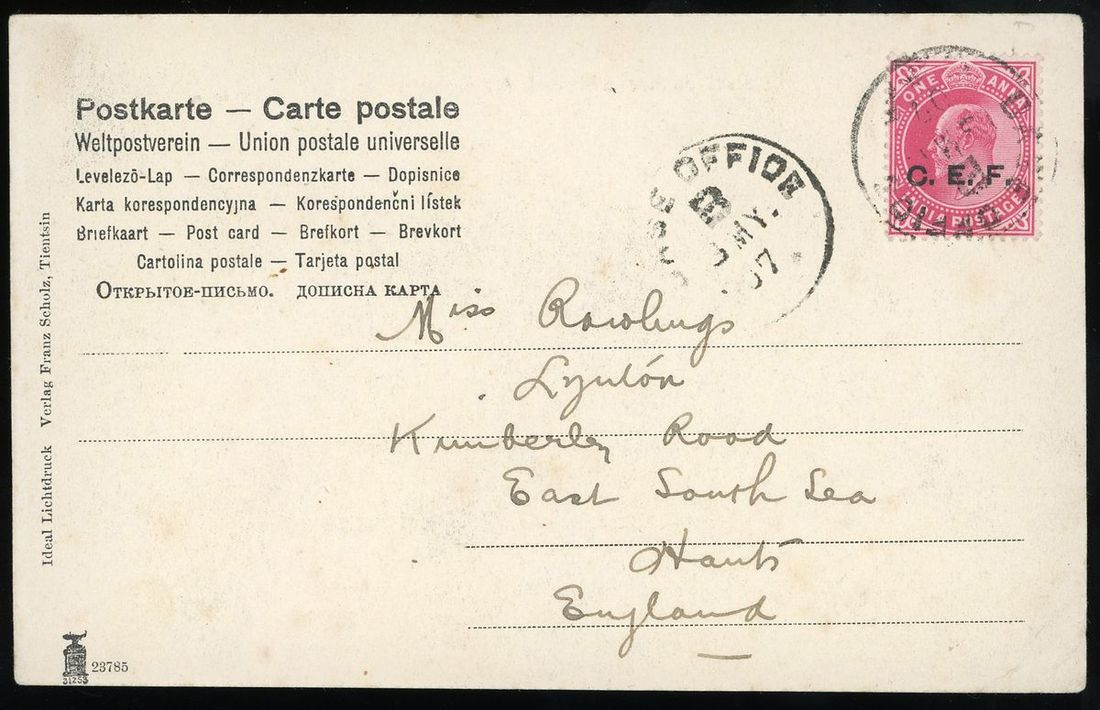 Postkarte — Carte postale
Weltpostverein — Union postale universelle
Levelező-Lap — Correspondenzkarte — Dopisnice
Karta korespondencyjna — Korespondenční lístek
Briefkaart — Post card — Brefkort — Brevkort
Cartolina postale — Tarjeta postal
Открытое-письмо. дописна карта
ONE ANNA
C. E. F.
OFFICE
B
MY.
07
Miss Rawlings
Lynton
Kimberley Road
East South Sea
Hants
England
Ideal Lichtdruck Verlag Franz Scholz, Tientsin
23785
31253